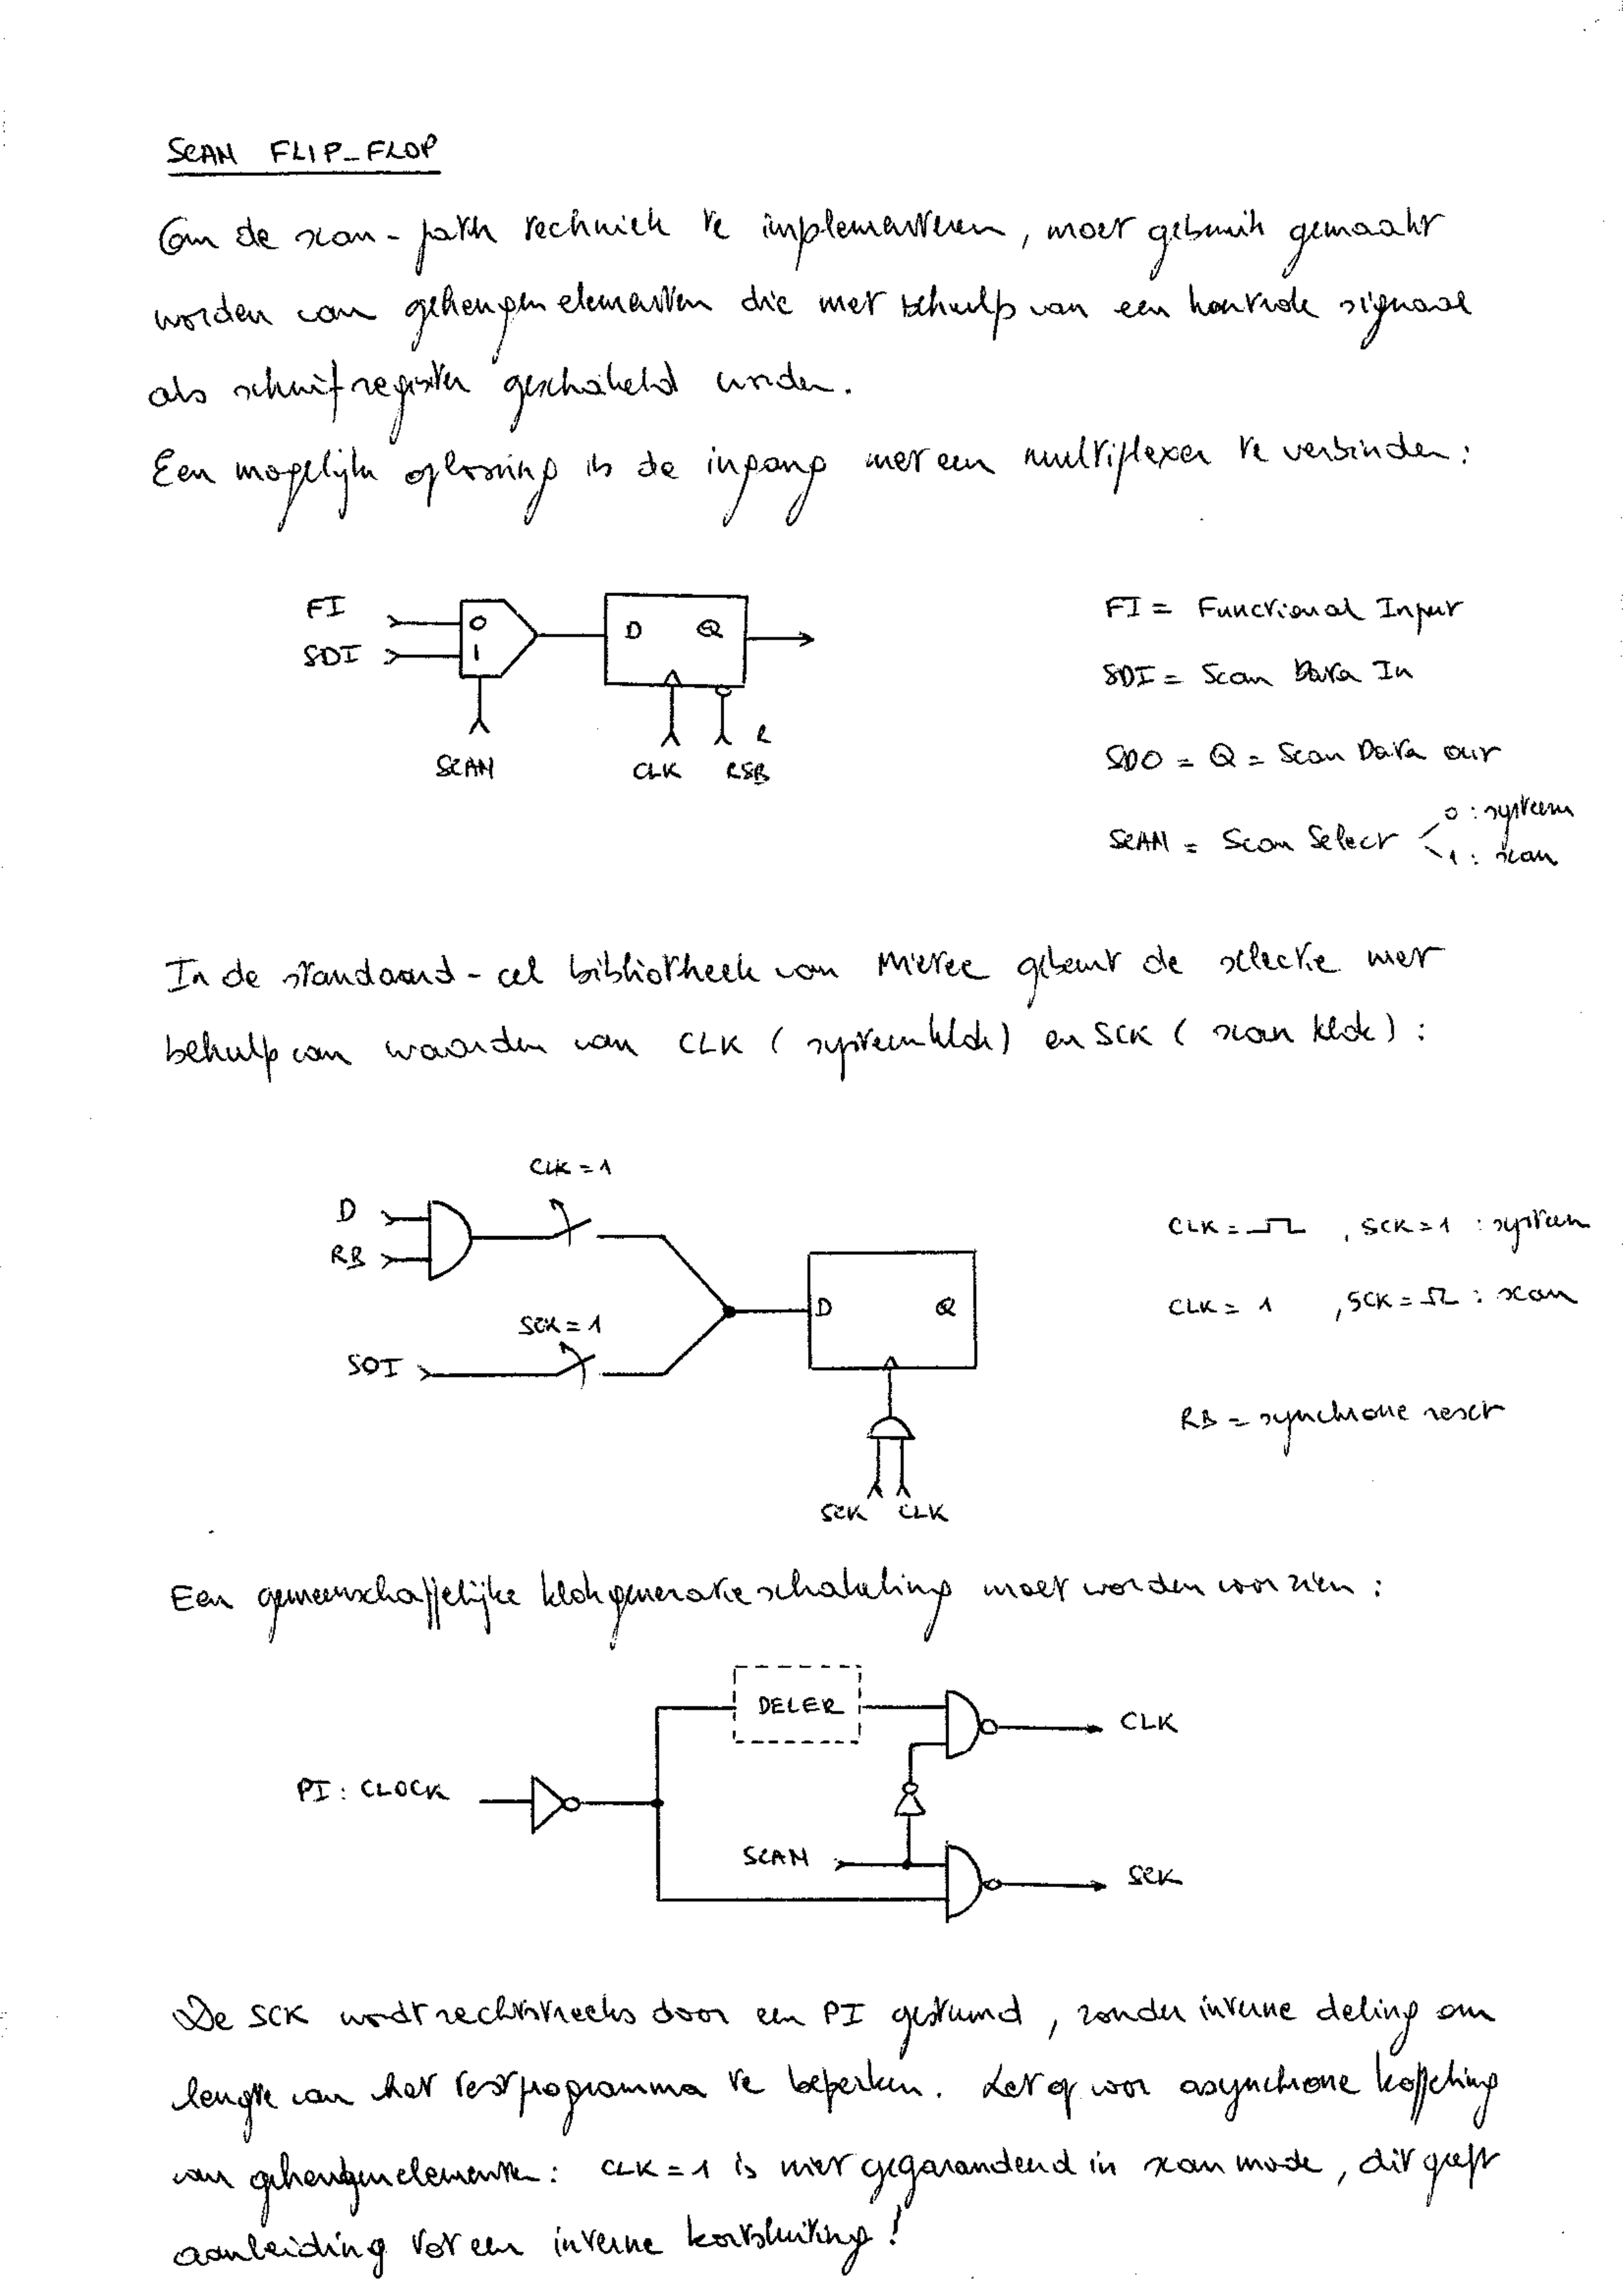 SCAN FLIP-FLOP
Om de scan-path techniek te implementeren, moet gebruik gemaakt
worden van geheugenelementen die met behulp van een kontrole signaal
als schuifregister geschakeld worden.
Een mogelijke oplossing is de ingang met een multiplexer te verbinden:
FI
SDI
0
1
D Q
SCAN
CLK
RSB
R
FI = Functional Input
SDI = Scan Data In
SDO = Q = Scan Data out
SCAN = Scan Select
0 : systeem
1 : scan
In de standaard-cel bibliotheek van Mietec gebeurt de selectie met
behulp van waarden van CLK (systeemklok) en SCK (scan klok) :
CLK = 1
D
RB
SCK = 1
SDI
D Q
SCK CLK
CLK = , SCK = 1 : systeem
CLK = 1 , SCK = : scan
RB = synchrone reset
Een gemeenschappelijke klokgeneratieschakeling moet worden voorzien :
DELER
CLK
PI : CLOCK
SCAN
SCK
De SCK wordt rechtstreeks door een PI gestuurd, zonder interne deling om
lengte van het testprogramma te beperken. Let op voor asynchrone koppeling
van geheugenelementen : CLK = 1 is niet gegarandeerd in scan mode, dit geeft
aanleiding tot een interne kortsluiting !